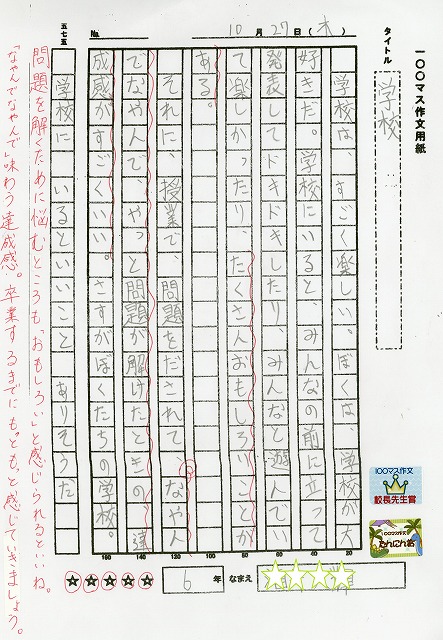 一〇〇マス作文用紙
タイトル
学校
10月27日(木)
No.
学校は すごく楽しい。ぼくは、学校が大
好きだ。学校にいると、みんなの前に立って
発表してドキドキしたり、みんなと遊んでい
て楽しかったり、たくさんおもしろいことが
ある。
それに、授業で、問題をだされて、なやん
でなやんで、やっと問題が解けたときの達
成感がすごくいい。さすがぼくたちの学校。
五七五
学校に いるといいこと ありそうだ
問題を解くために悩むところも「おもしろい」と感じられるといいね。
「なやんでなやんで」味わう達成感。卒業するまでにもっともっと感じていきましょう。
100マス作文
校長先生賞
100マス作文
たんにん賞
20
40
60
80
100
120
140
160
6年 なまえ